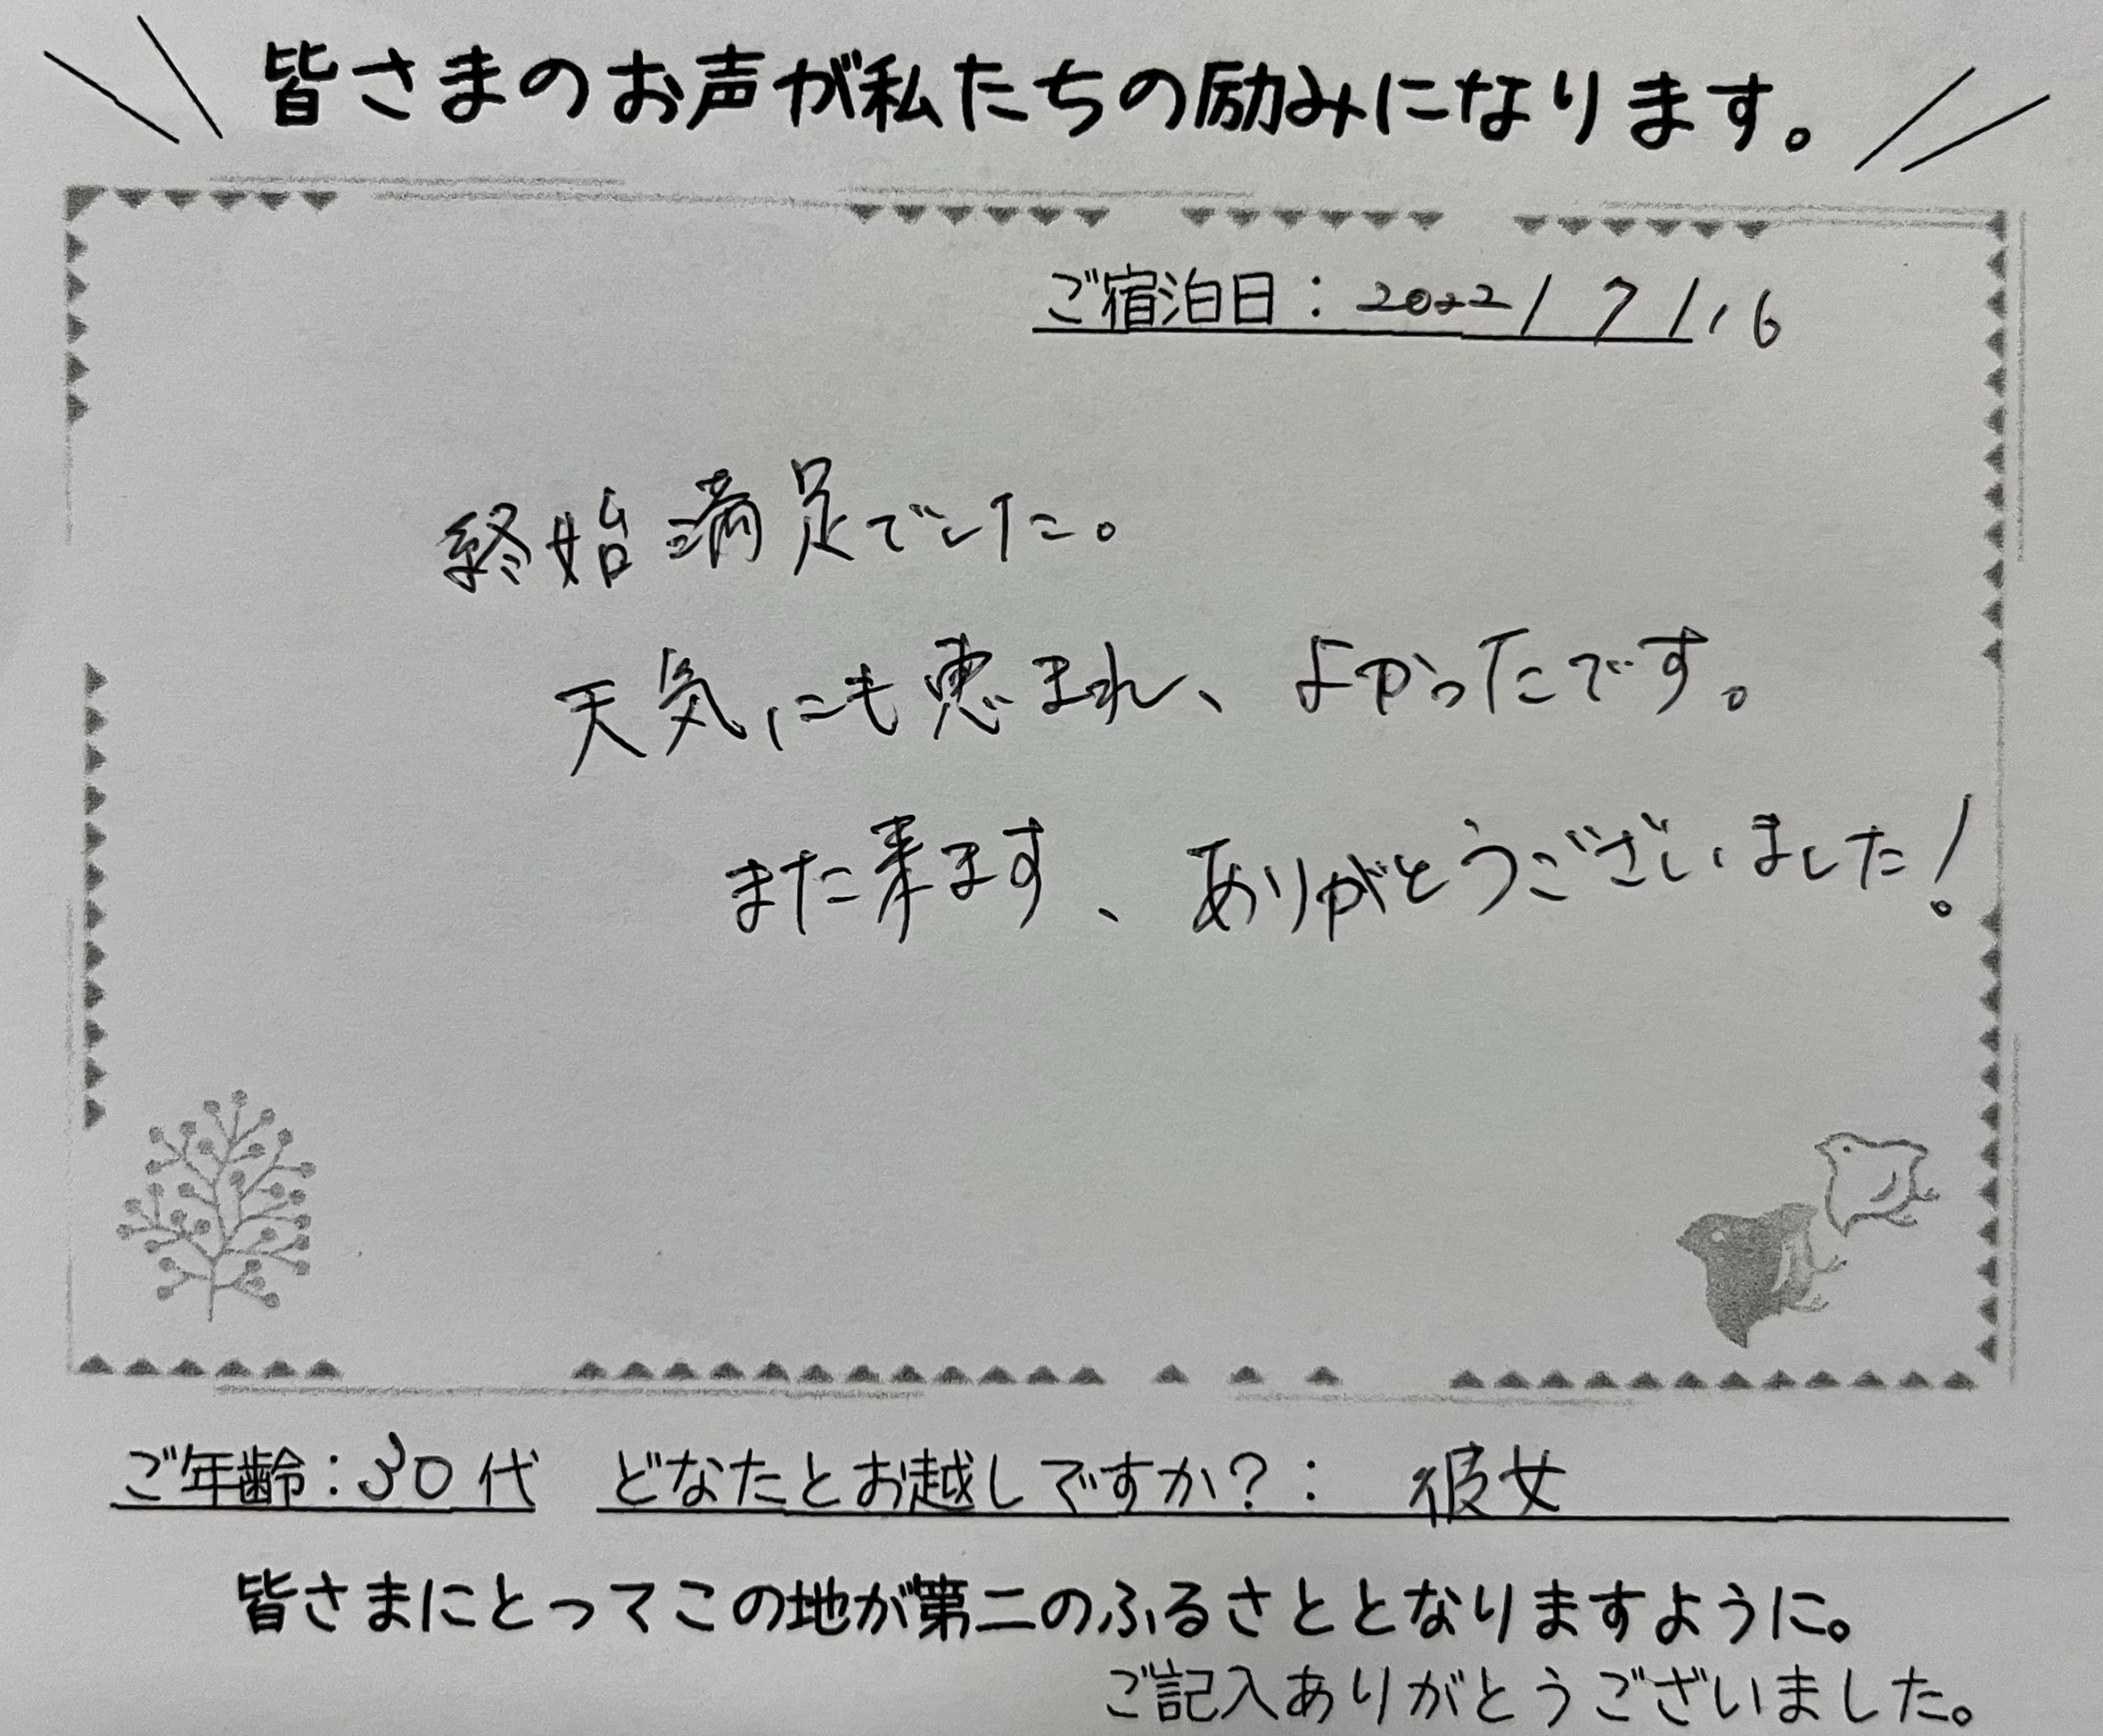 皆さまのお声が私たちの励みになります。
ご宿泊日：2022/7/16
終始満足でした。
天気にも恵まれ、よかったです。
また来ます、ありがとうございました！
ご年齢：30代 どなたとお越しですか？： 彼女
皆さまにとってこの地が第二のふるさととなりますように。
ご記入ありがとうございました。